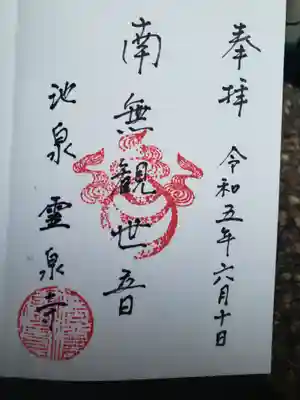 奉拝
令和五年六月十日
南無観世音
池泉 霊泉寺